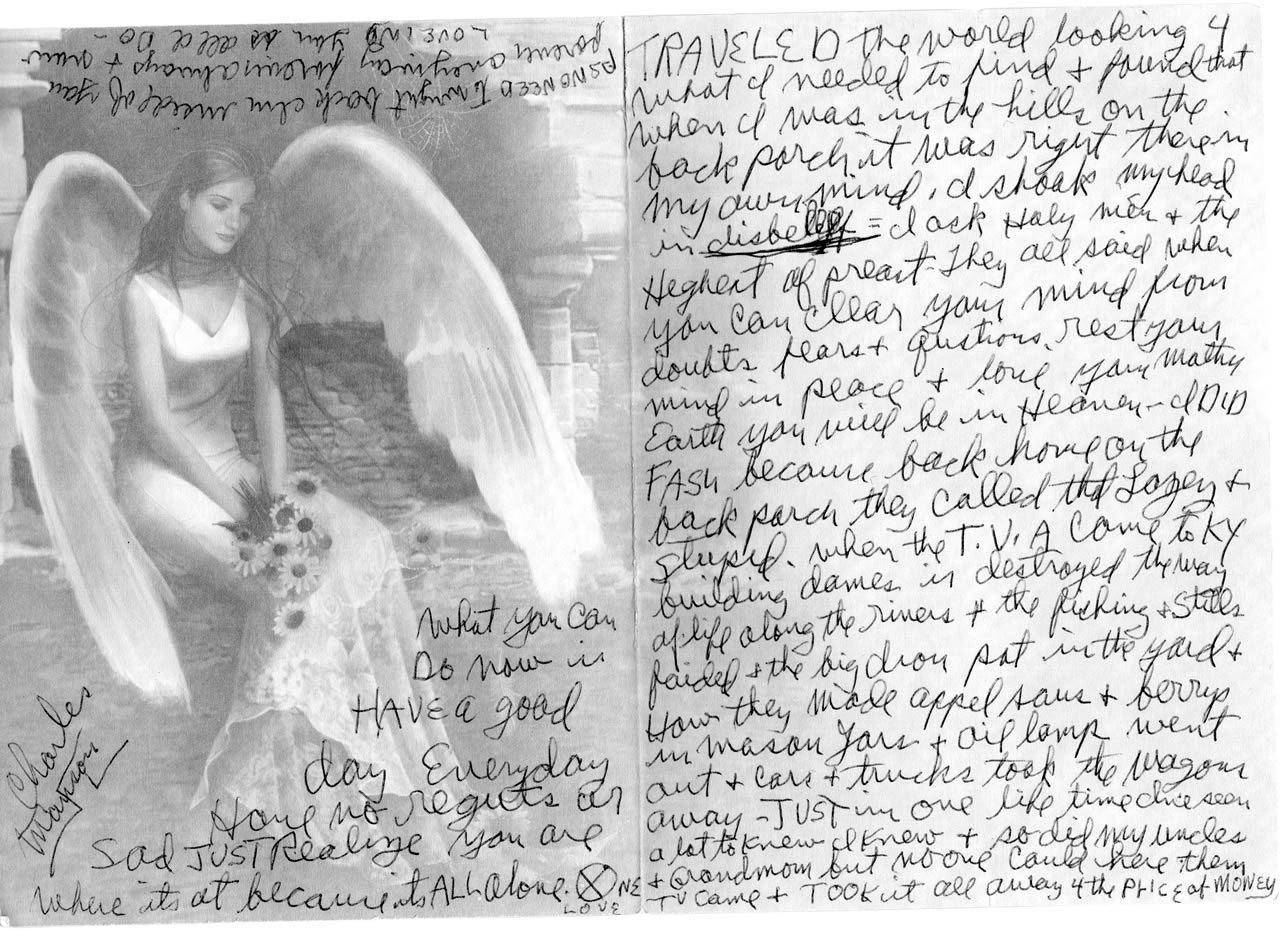 AS NO NEED To wright back Im inside of you
forever anyway forever always + now
LOVE IND you as all I DO -
what you can
DO now is
HAVE a good
day Everyday
Have no regrets or
Sad JUST Realize you are
where its at because its ALL alone. ONE
LOVE
Charles
Manson
TRAVELED the world looking 4
what I needed to find + found that
when I was in the hills on the
back porch it was right there in
my own mind, I shoak my head
in = I ask Holy men + the
Heghest of preast - They all said when
you can cllear your mind from
doubts fears + qustions, rest your
mind in peace + love your mathy
Earth you will be in Heaven - I DID
FASH because back home on the
back porch they called that Lazey +
stupid. when the T.V.A come to KY
building dames is destroyed the way
of life along the rivers + the fishing + Stills
faided + the big iron pot in the yard +
How they made appel saus + berrys
in mason Jars + oil lamp went
out + cars + trucks took the wagons
away - JUST in one life time Ive seen
a lot to knew I knew + so did my uncles
+ Grandmom but no one could here them
TV came + TOOK it all away 4 the PRICE of MONEY,